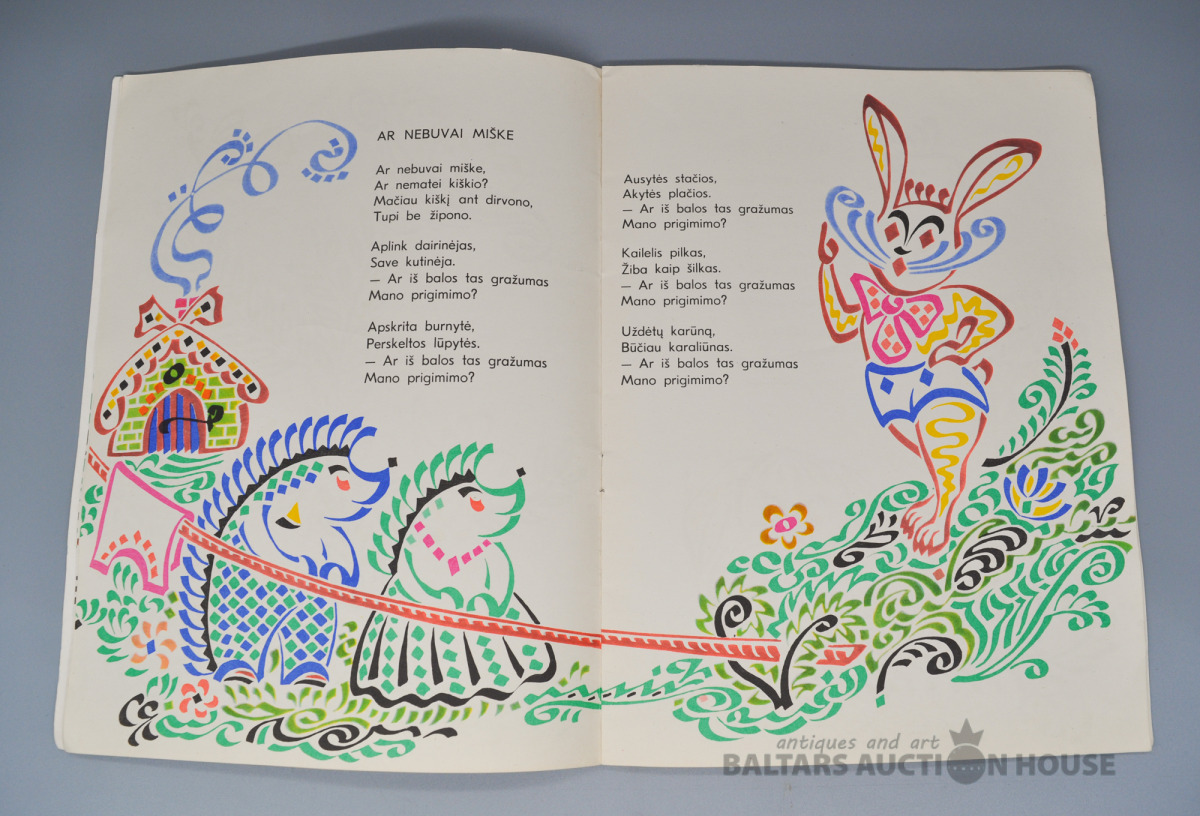 AR NEBUVAI MIŠKE
Ar nebuvai miške,
Ar nematei kiškio?
Mačiau kiškį ant dirvono,
Tupi be žipono.
Aplink dairinėjas,
Save kutinėja.
— Ar iš balos tas gražumas
Mano prigimimo?
Apskrita burnytė,
Perskeltos lūpytės.
— Ar iš balos tas gražumas
Mano prigimimo?
Ausytės stačios,
Akytės plačios.
— Ar iš balos tas gražumas
Mano prigimimo?
Kailelis pilkas,
Žiba kaip šilkas.
— Ar iš balos tas gražumas
Mano prigimimo?
Uždėtų karūną,
Būčiau karaliūnas.
— Ar iš balos tas gražumas
Mano prigimimo?
antiques and art
BALTARS AUCTION HOUSE